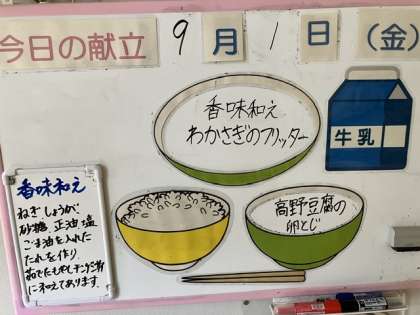 今日の献立 9月1日(金)
香味和え
わかさぎのフリッター
牛乳
高野豆腐の
卵とじ
香味和え
ねぎ しょうが、
砂糖、正油、塩
ごま油を入れた
たれを作り、
茹でたもやし チンゲン菜
に和えてあります。